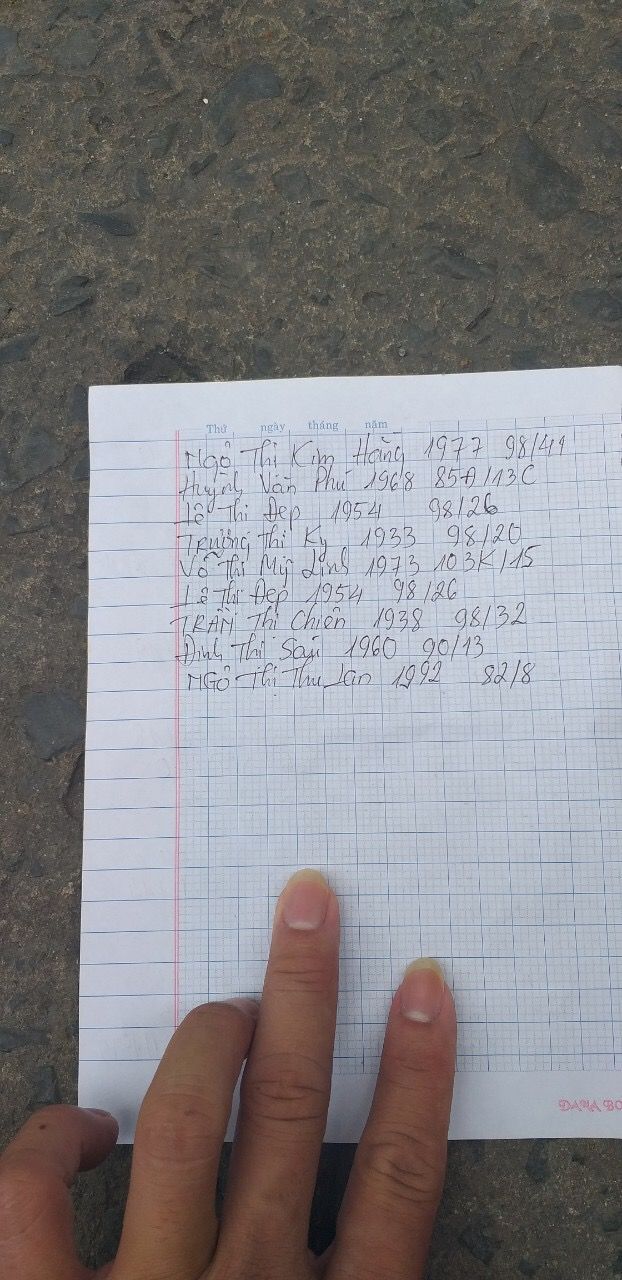 Thứ ngày tháng năm
Ngô Thị Kim Hằng 1977 98/41
Huỳnh Văn Phú 1968 85A/13C
Lê Thị Đẹp 1954 98/26
Trương Thị Ky 1933 98/20
Võ Thị Mỹ Linh 1973 103K/15
Lê Thị Đẹp 1954 98/26
TRẦN Thị Chiên 1938 98/32
Đinh Thị 1960 90/13
NGÔ Thị Thu Lan 1992 82/8